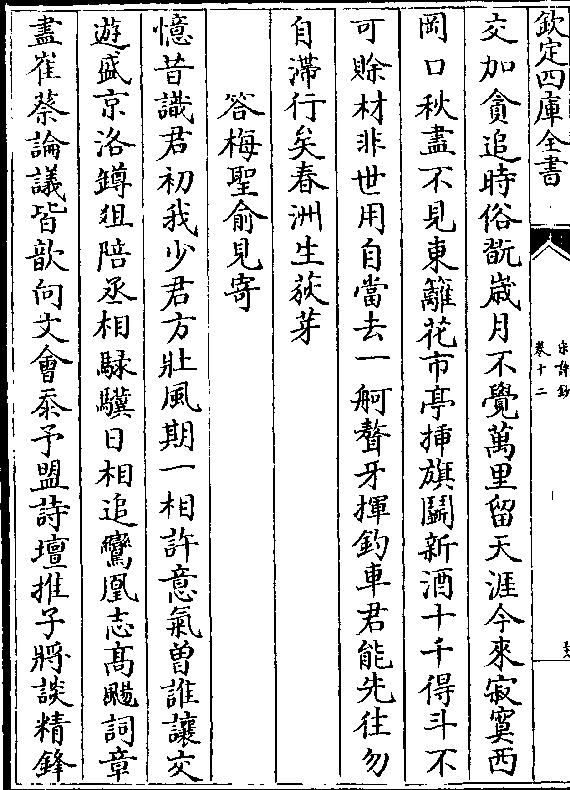 欽定四庫全書
宋詩鈔
卷十二
交加貪追時俗翫歲月不覺萬里留天涯今來寂寞西
岡口秋盡不見東籬花市亭揷旗鬭新酒十千得斗不
可賒材非世用自當去一舸聱牙揮釣車君能先往勿
自滯行矣春洲生荻芽
答梅聖俞見寄
憶昔識君初我少君方壯風期一相許意氣曾誰讓交
遊盛京洛罇俎陪丞相騄驥日相追鸞凰志髙颺詞章
盡崔蔡論議皆歆向文會忝予盟詩壇推子將談精鋒